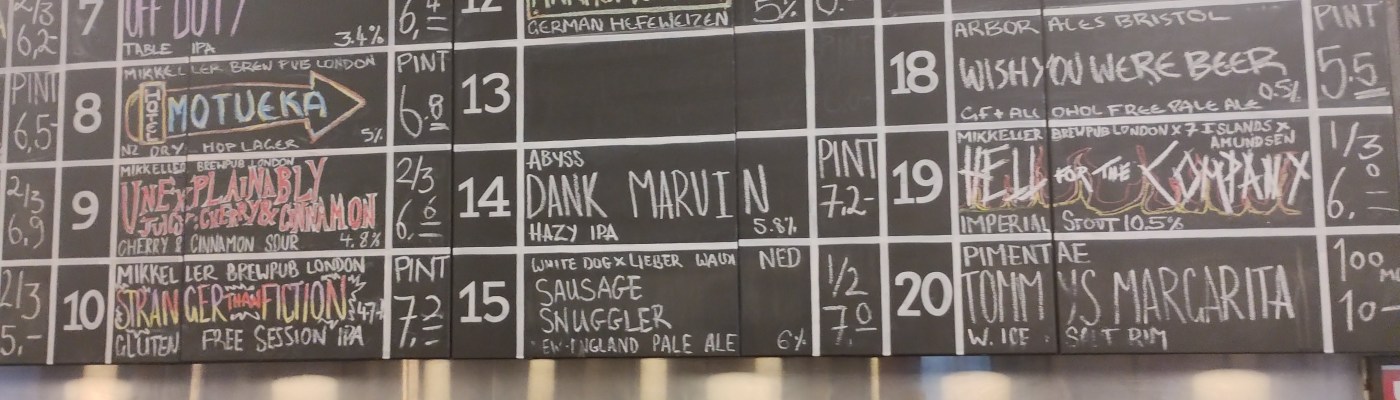 2/3
6,2-
7
OFF DUTY
TABLE IPA 3.4%
6,4
12
GERMAN HEFEWEIZEN
5%
PINT
6,5-
8
MIKKELLER BREW PUB LONDON
HOTEL
MOTUEKA
NZ DRY HOP LAGER 5%
PINT
6.8
13
2/3
6,9
9
MIKKELLER BREWPUB LONDON
UNEXPLAINABLY
JUICY: CHERRY & CINNAMON
CHERRY & CINNAMON SOUR 4.8%
2/3
6.6
14
ABYSS
DANK MARVIN
HAZY IPA 5.8%
PINT
7.2-
2/3
5,-
10
MIKKELLER BREWPUB LONDON
STRANGER THAN FICTION
GLUTEN FREE SESSION IPA
PINT
7,2
15
WHITE DOG X LIEBER WALDI NED
SAUSAGE
SNUGGLER
EW-ENGLAND PALE ALE 6%
1/2
7.0
18
ARBOR ALES BRISTOL
WISH YOU WERE BEER
0.5%
GF + ALCOHOL FREE PALE ALE
PINT
5.5
19
MIKKELLER BREWPUB LONDON X 7 ISLANDS X
AMUNDSEN
HELL FOR THE COMPANY
IMPERIAL STOUT 10.5%
1/3
6,0
20
PIMENTAE
TOMMYS MARGARITA
W. ICE SALT RIM
100
10-